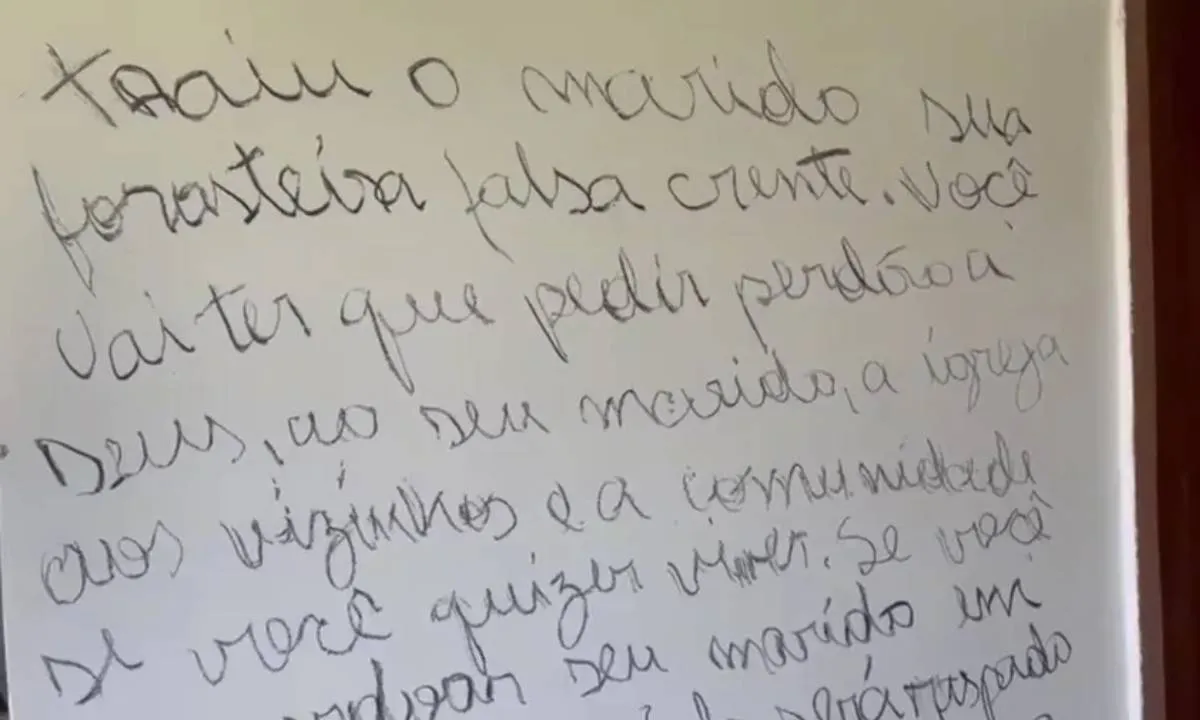 traiu o marido sua
forasteira falsa crente. Você
vai ter que pedir perdão a
Deus, ao seu marido, a igreja
aos vizinhos e a comunidade
se você quizer viver. Se você
seu marido em
será raspado